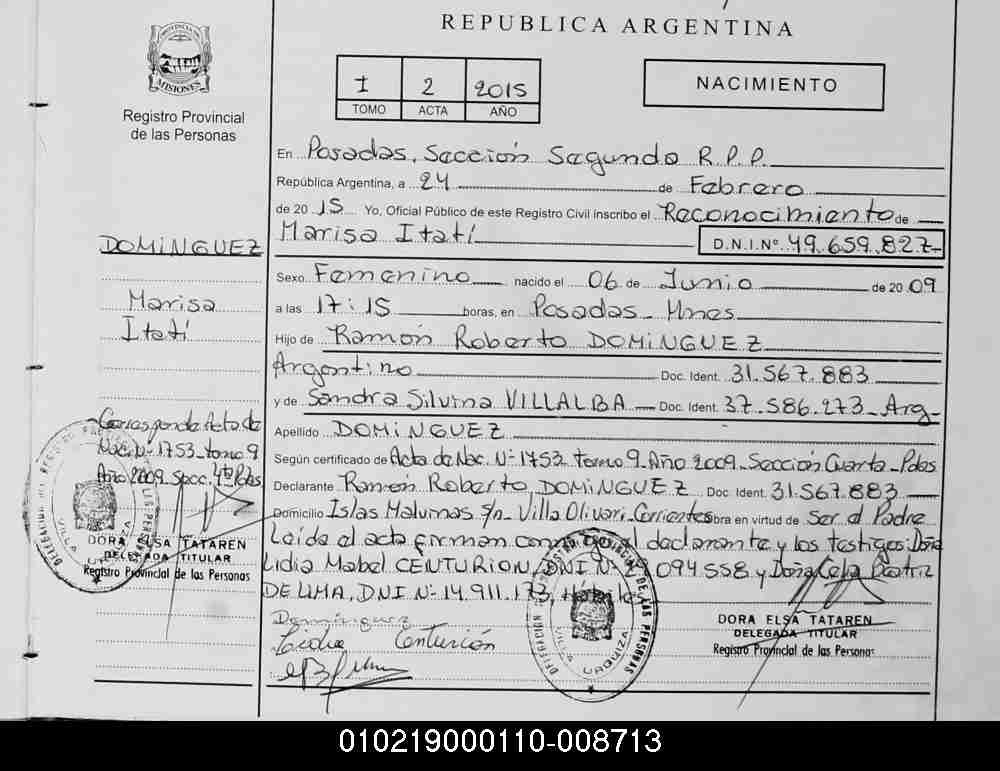 REPUBLICA ARGENTINA
PROVINCIA DE
MISIONES
Registro Provincial
de las Personas
I 2 2015
TOMO ACTA AÑO
NACIMIENTO
En Posadas, Sección Segunda R.P.P.
República Argentina, a 24 de Febrero
de 2015 Yo, Oficial Público de este Registro Civil inscribo el Reconocimiento de
Marisa Itatí D.N.I.Nº 49.659.827
Sexo Femenino nacido el 06 de Junio de 2009
a las 17:15 horas, en Posadas - Mnes
Hijo de Ramón Roberto DOMiNGUEZ
Argentino Doc. Ident. 31.567.883
y de Sandra Silvina VILLALBA Doc. Ident. 37.586.273 - Arg
Apellido DOMiNGUEZ
Según certificado de Acta de Nac. Nº 1753 tomo 9 Año 2009 - Sección Cuarta - Pdas
Declarante Ramón Roberto DOMiNGUEZ Doc. Ident. 31.567.883
Domicilio Islas Malvinas S/n - Villa Olivari. Corrientes obra en virtud de Ser el Padre
Leída el acta firman conmigo el declarante y los testigos: Doña
Lidia Mabel CENTURION, DNI Nº 29.094.558 y Doña Celia Beatriz
DE LIMA, DNI Nº 14.911.173, Hábiles
Dominguez
Lidia Centurión
DOMiNGUEZ
Marisa
Itatí
Corresponde Acta de
Nac. Nº 1753 - tomo 9
Año 2009 Secc. 4ta Pdas
DORA ELSA TATAREN
DELEGADA TITULAR
Registro Provincial de las Personas
DELEGACION DEL REGISTRO PROVINCIAL DE LAS PERSONAS
VILLA URQUIZA
DORA ELSA TATAREN
DELEGADA TITULAR
Registro Provincial de las Personas
010219000110-008713